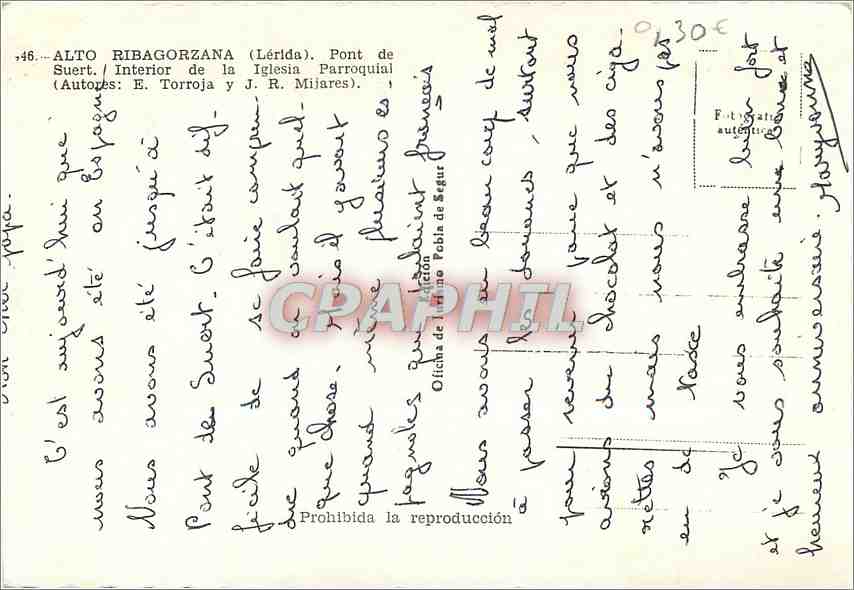 46.- ALTO RIBAGORZANA (Lérida). Pont de
Suert. / Interior de la Iglesia Parroquial
(Autores: E. Torroja y J. R. Mijares).
0,30€
Fotografía
auténtica
Edición
Oficina de Turismo Pobla de Segur
Prohibida la reproducción
CPAPHIL
Mon cher papa.
C'est aujourd'hui que
nous avons été en Espagne
Nous avons été jusqu'à
Pont de Suert. C'était dif-
ficile de se faire compren-
dre quand on voulait quel-
que chose. Mais il y avait
quand même plusieurs es-
pagnoles qui parlaient français
Nous avons eu beaucoup de mal
à passer les douanes, surtout
pour revenir parce que nous
avions du chocolat et des ciga-
rettes mais nous n'avons pas
eu de taxe
Je vous embrasse bien fort
et je vous souhaite une bonne et
heureux anniversaire. Maryvonne